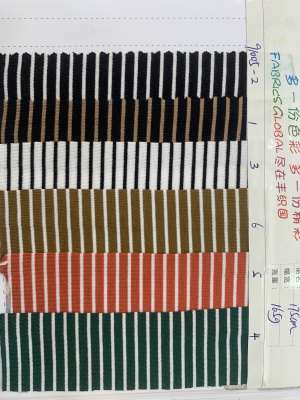 多一份色彩 多一份精彩
FABRICS GLOBAL 尽在丰织国
175cm
165g
91005-2
1
3
6
5
4